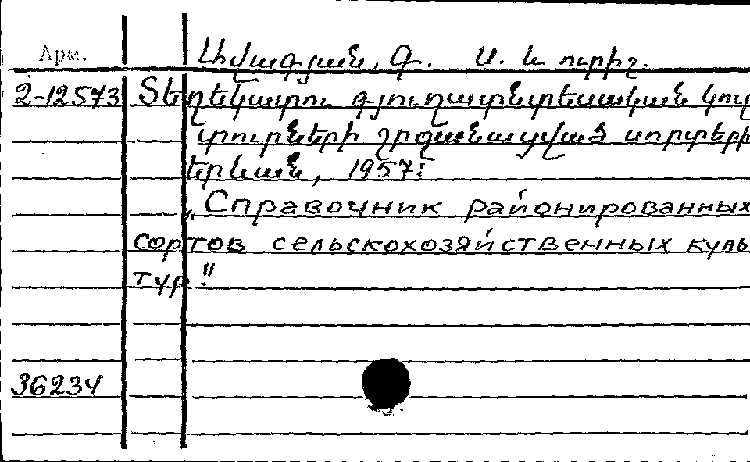 Арм.
Ավագյան, Գ. Ս. և ուրիշ.
2-12573 Տեղեկատու գյուղատնտեսական կուլ
տուրների շրջանացված սորտերի
Երևան, 1957։
„Справочник районированных
сортов сельскохозяйственных куль
тур"
36234